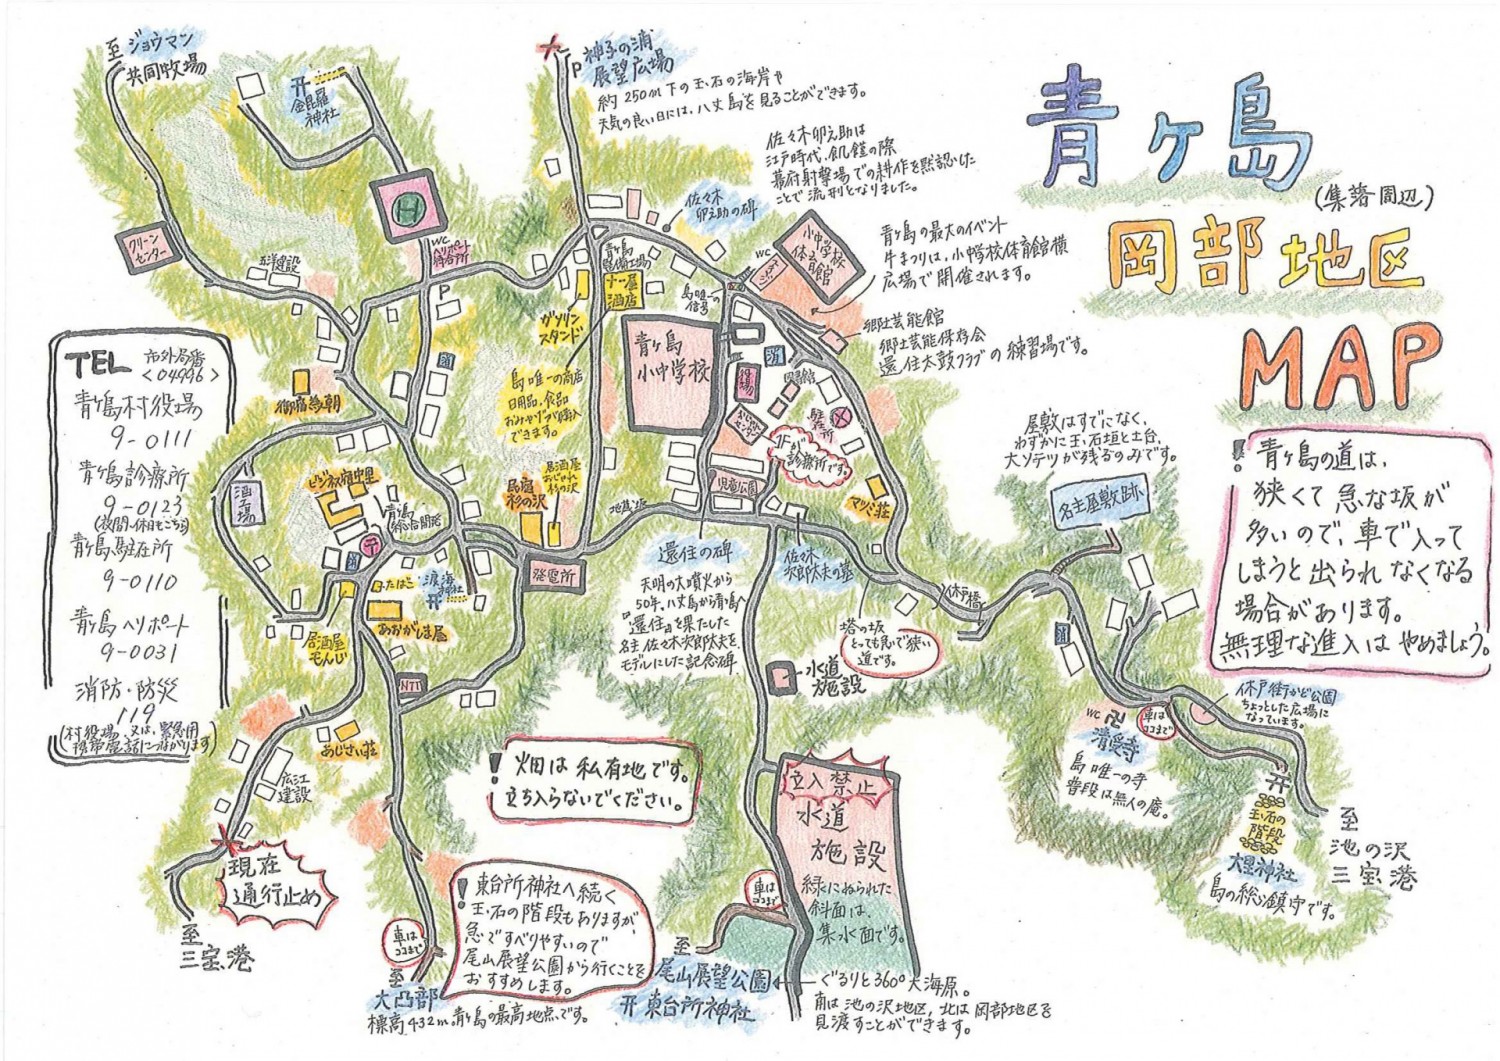 青ヶ島
(集落周辺)
岡部地区
MAP
!青ヶ島の道は、
狭くて急な坂が
多いので、車で入って
しまうと出られなくなる
場合があります。
無理な進入はやめましょう。
至ジョウマン
共同牧場
金毘羅
神社
神子の浦
展望広場
P
約250m下の玉石の海岸や
天気の良い日には、八丈島を見ることができます。
佐々木卯之助は
江戸時代、飢饉の際
幕府射撃場での耕作を黙認した
ことで流刑となりました。
佐々木
卯之助の碑
青ヶ島の最大のイベント
牛まつりは、小中学校体育館横
広場で開催されます。
小中学校
体育館
WC
郷土芸能館
郷土芸能保存会
還住太鼓クラブの練習場です。
クリーン
センター
H
WC
ヘリポート
待合所
P
青ヶ島
整備工場
十一屋
酒店
島唯一の
信号
ガソリン
スタンド
青ヶ島
小中学校
消
役場
図書館
駐在所
1Fが
診療所です。
島唯一の商店
日用品、食品
おみやげが購入
できます。
御宿為朝
TEL
市外局番
<04996>
青ヶ島村役場
9-0111
青ヶ島診療所
9-0123
(夜間・休日もこちら)
青ヶ島駐在所
9-0110
青ヶ島ヘリポート
9-0031
消防・防災
119
(村役場又は、緊急用
携帯電話につながります)
酒工場
ビジネス宿中里
青ヶ島
総合開発
〒
消
たばこ
渡海
神社
あおがしま屋
居酒屋
もんじ
NTT
民宿
杉の沢
居酒屋
おじゃれ
杉の沢
発電所
児童公園
マツミ荘
還住の碑
天明の大噴火から
50年、八丈島から青ヶ島へ
『還住』を果たした
名主佐々木次郎太夫を
モデルにした記念碑
佐々木
次郎太夫の墓
屋敷はすでになく、
わずかに玉石垣と土台、
大ソテツが残るのみです。
名主屋敷跡
休戸橋
消
塔の坂
とっても急で狭い
道です。
水道
施設
休戸街かど公園
ちょっとした広場に
なっています。
車は
ココまで
WC
卍
清受寺
島唯一の寺
普段は無人の庵。
玉石の
階段
大里神社
島の総鎮守です。
至
池の沢
三宝港
あじさい荘
広江
建設
現在
通行止め
至
三宝港
!畑は私有地です。
立ち入らないでください。
立入禁止
水道
施設
緑にぬられた
斜面は、
集水面です。
!東台所神社へ続く
玉石の階段もありますが、
急ですべりやすいので
尾山展望公園から行くことを
おすすめします。
車は
ココまで
至
大凸部
標高432m青ヶ島の最高地点です。
車は
ココまで
至
尾山展望公園
東台所神社
ぐるりと360°大海原。
南は池の沢地区、北は岡部地区を
見渡すことができます。